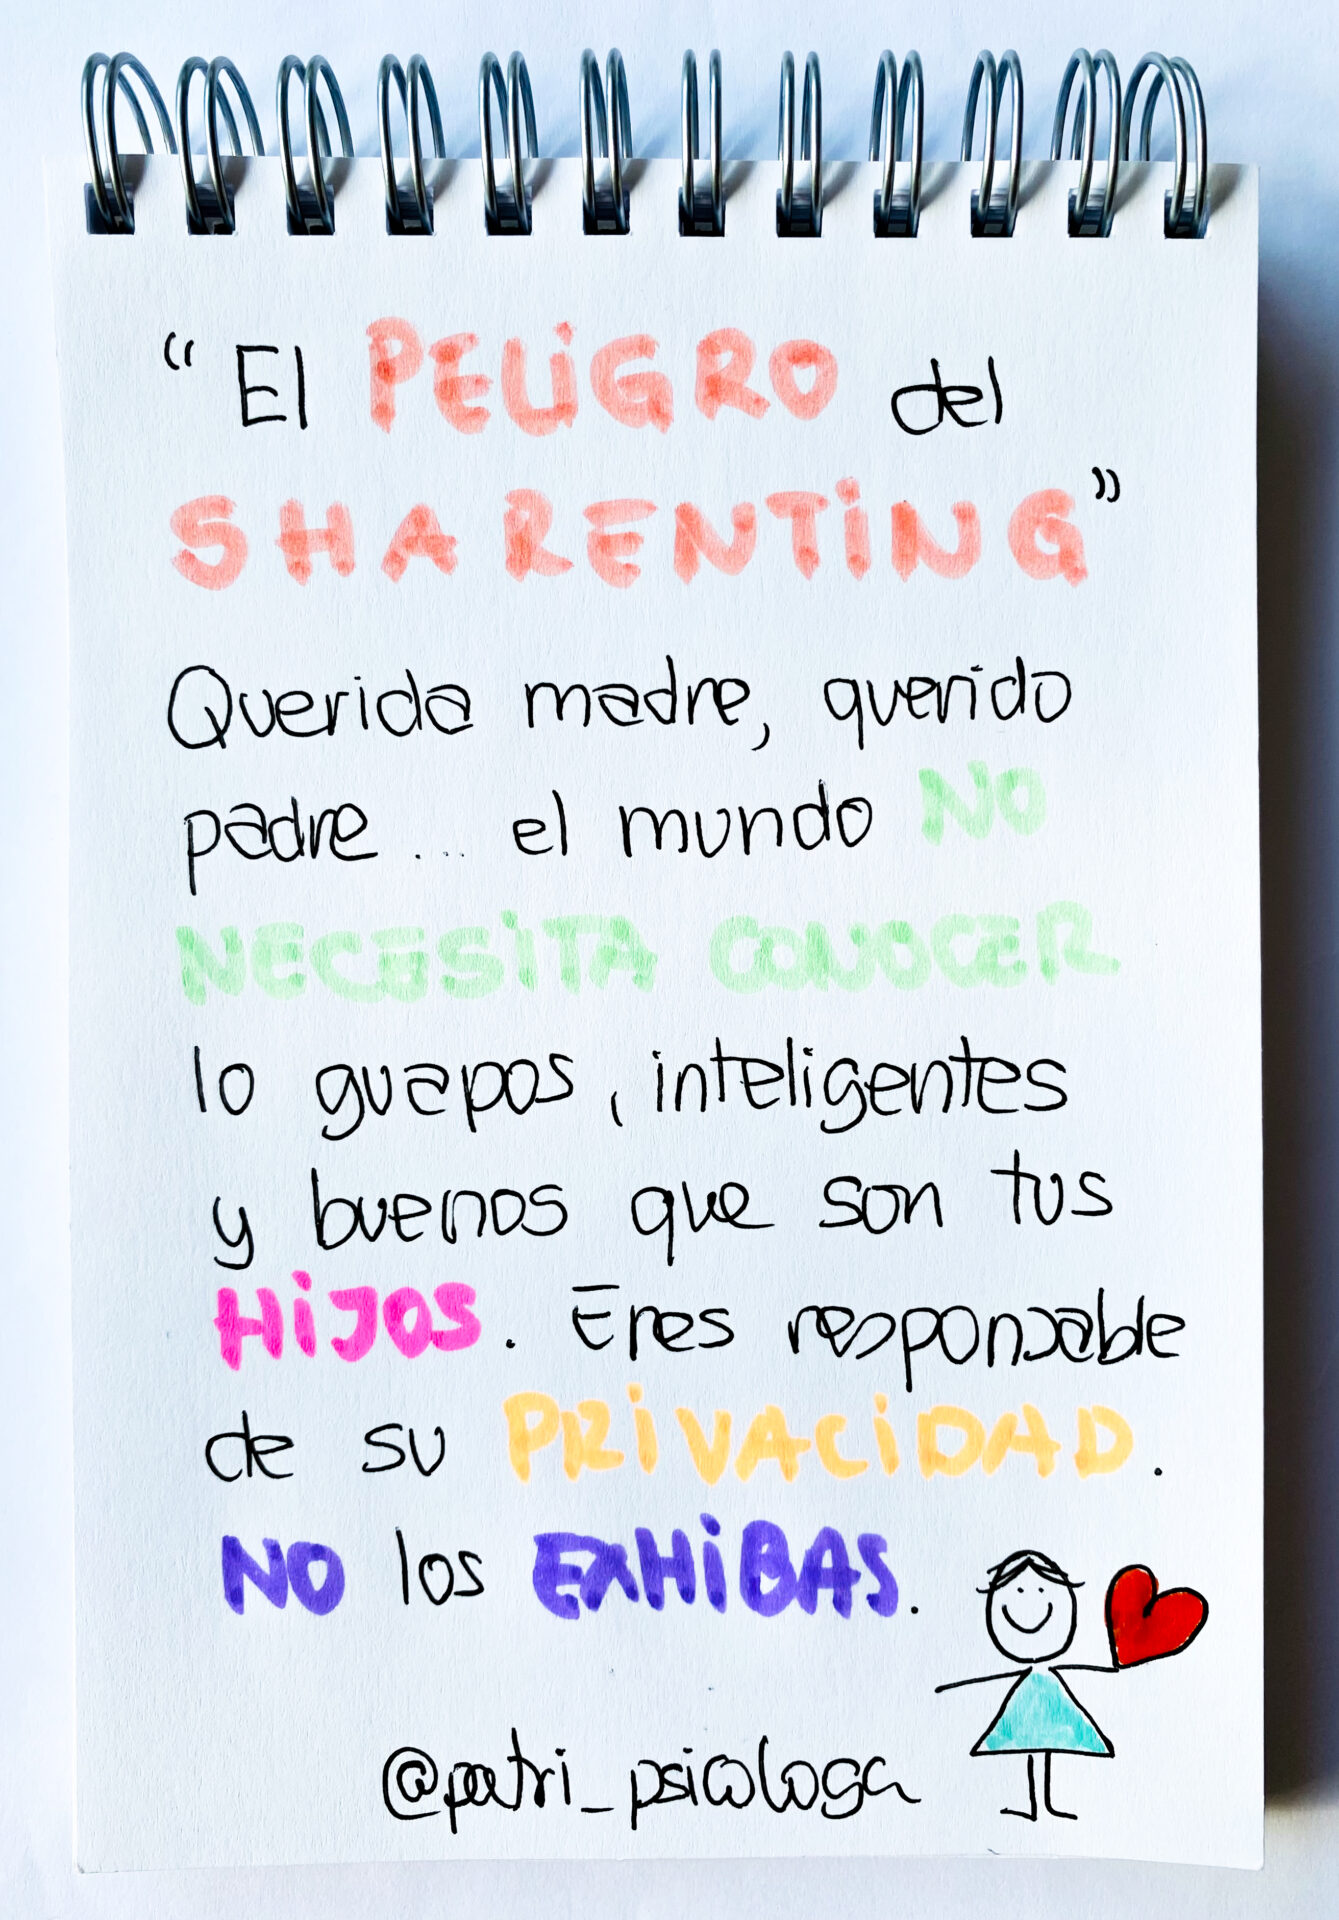 “El PELIGRO del
SHARENTING”
Querida madre, querido
padre... el mundo NO
NECESITA CONOCER
lo guapos, inteligentes
y buenos que son tus
HIJOS. Eres responsable
de su PRIVACIDAD.
NO los EXHIBAS.
@patri_psicologa